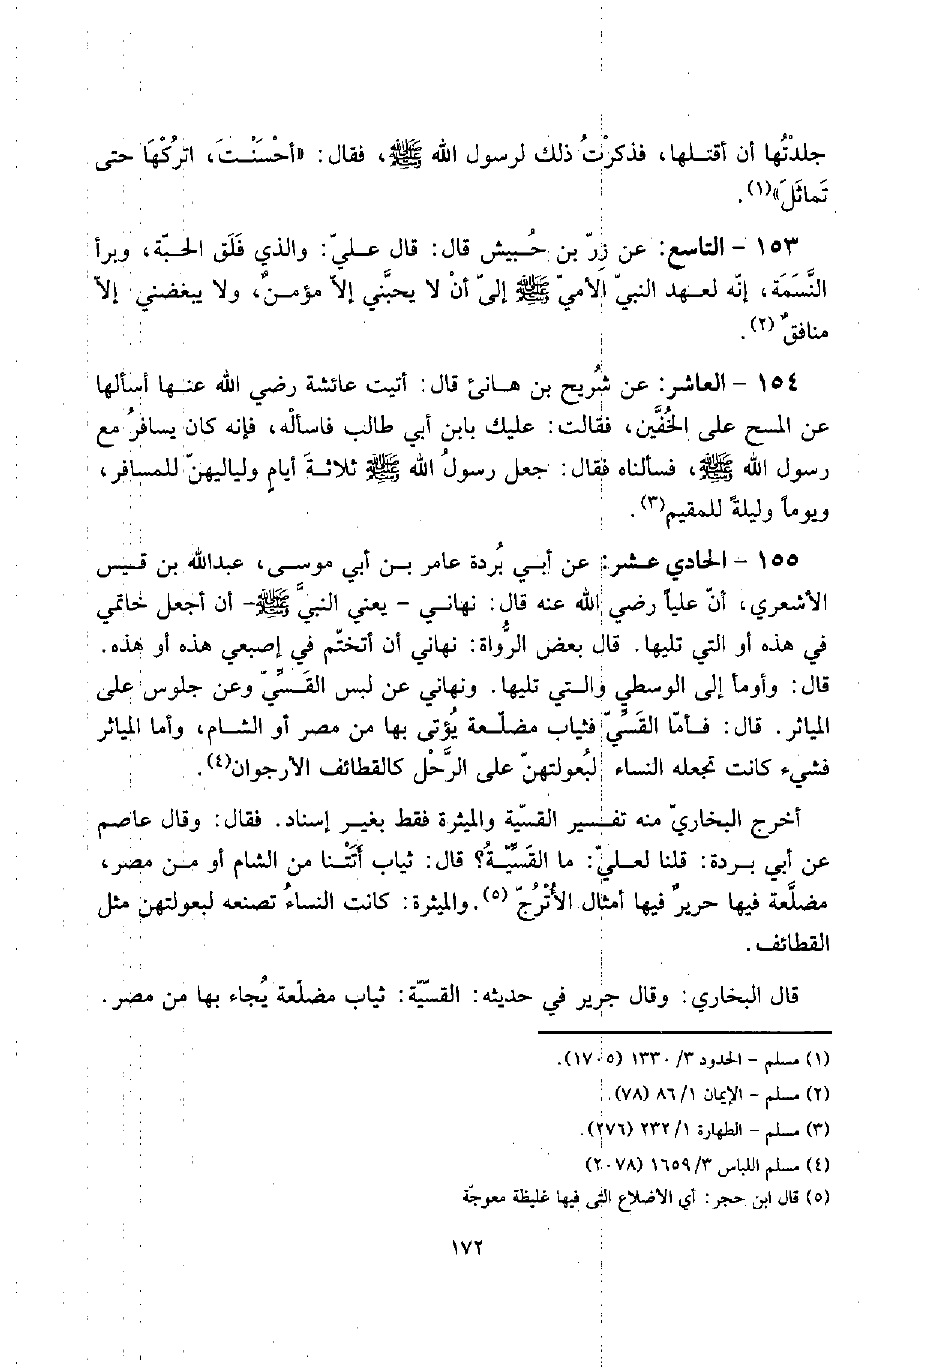 جلدْتُها أن أقتـلها، فذكرْتُ ذلك لرسول الله ﷺ، فقال: «أحْسَنْـتَ، اترُكْهَا حتى
تَماثَلَ»(١).
١٥٣ - التاسع: عن زِرّ بن حُـبيش قال: قال عـليّ: والذي فَلَق الحبّة، وبرأ
النَّسَمَة، إنّه لعـهد النبيّ الأميّ ﷺ إليّ أنْ لا يحبَّني إلاّ مؤمـنٌ، ولا يبغضني إلاّ
منافقٌ(٢).
١٥٤ - العاشر: عن شُريح بن هـانئ قال: أتيت عائشة رضي الله عنـها أسألها
عن المسح على الخُفَّين، فقالت: عليك بابن أبي طالب فاسأله، فإنه كان يسافرُ مع
رسول الله ﷺ، فسألناه فقال: جعل رسولُ الله ﷺ ثلاثـةَ أيامٍ ولياليهنّ للمسافر،
ويوماً وليلةً للمقيم(٣).
١٥٥ - الحادي عـشر: عن أبـي بُردة عامر بـن أبي موسـى، عبدالله بن قـيس
الأشعري، أنّ علياً رضي الله عنه قال: نهانـي - يعني النبيَّ ﷺ- أن أجعل خاتمي
في هذه أو التي تليها. قال بعض الرُّواة: نهاني أن أتختّم في إصبعي هذه أو هذه.
قال: وأومأ إلى الوسطي والـتي تليها. ونهاني عن لبس القَـسِّيّ وعن جلوس على
المياثر. قال: فـأمّا القَسِّيّ فثياب مضلّـعة يُؤتى بها من مصر أو الشـام، وأما المياثر
فشيء كانت تجعله النساء لبُعولتهنّ على الرَّحْل كالقطائف الأرجوان(٤).
أخرج البخاريّ منه تفـسير القسيّة والميثرة فقط بغيـر إسناد. فقال: وقال عاصم
عن أبي بـردة: قلنا لعـليّ: ما القَسِّيَّةُ؟ قال: ثياب أتَتْـنا من الشام أو مـن مصر،
مضلَّعة فيها حريرٌ فيها أمثال الأُتْرُجّ(٥). والميثرة: كانت النساءُ تصنعه لبعولتهن مثل
القطائف.
قال البخاري: وقال جرير في حديثه: القسيّة: ثياب مضلّعة يُجاء بها من مصر.
(١) مسلم - الحدود ٣/ ١٣٣٠ (١٧٠٥).
(٢) مسلم - الإيمان ١/ ٨٦ (٧٨).
(٣) مسلم - الطهارة ١/ ٢٣٢ (٢٧٦).
(٤) مسلم اللباس ٣/ ١٦٥٩ (٢٠٧٨)
(٥) قال ابن حجر: أي الأضلاع التى فيها غليظة معوجّة
١٧٢